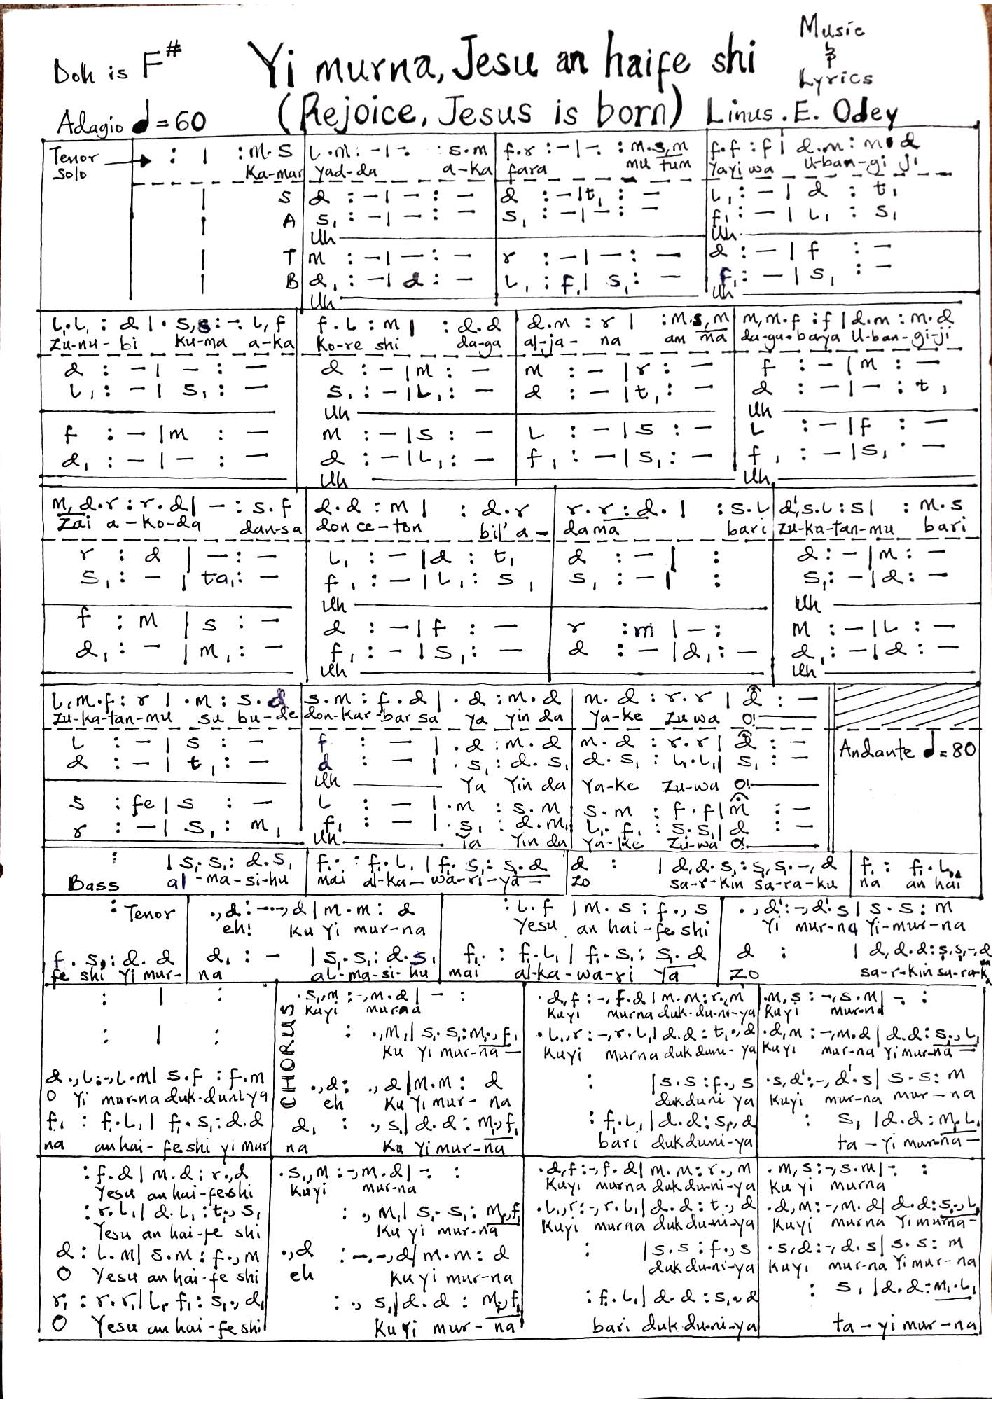 Doh is F#
Yi murna, Jesu an haife shi
Music & Lyrics
Adagio ♩=60
(Rejoice, Jesus is born)
Linus. E. Odey
Tenor solo → : | : m.s | L.m : -|- : s.m | f.r : -|- : m.s,m | f.f : f | d.m : m.d
Ka-mar yad-da a-ka fara mu tum yayi wa u-ban-gi ji
S d : -|- : - | d : -|t, : - | L, : -| d : t,
A s, : -|- : - | s, : -|- : - | f, : -| L, : s,
Uh Uh
T m : -|- : - | r : -|- : - | d : -| f : -
B d, : -|d : - | L, : f,| s, : - | f, : -| s, : -
Uh Uh
zu-nu-bi ku-ma a-ka ko-re shi da-ga al-ja-na an ma da-ga-baya u-ban-gi-ji
d : -|- : - | d : -|m : - | m : -|r : - | f : -|m : -
L, : -| s, : - | s, : -|L, : - | d : -|t, : - | d : -|- : t,
Uh Uh
f : -|m : - | m : -|s : - | L : -|s : - | L : -|f : -
d, : -|- : - | d : -|L, : - | f, : -|s, : - | f, : -|s, : -
Uh Uh
m, d.r : r.d| - : s.f | d.d : m | : d.r | r.r : d. | : s.L | d',s.L : s | : m.s
Zai a-ko-da dan-sa don ce-ton bil'a- dama bari zu-ka-tan-mu bari
r : d | - : - | L, : -|d : t, | d : -| : | d : -|m : -
s, : -| ta, : - | f, : -|L, : s, | s, : -| : | s, : -|d : -
Uh Uh
f : m | s : - | d : -|f : - | r : m |- : | m : -|L : -
d, : -| m, : - | f, : -|s, : - | d : -|d, : - | d, : -|d : -
Uh Uh
L.m.f : r | .m : s.d | s.m : f.d | .d : m.d | m.d : r.r | d : -
zu-ka-tan-mu su bu-de don-kar bar sa ya yin da ya-ke zuwa O!
L : -| s : - | f : - | .d : m.d | m.d : r.r | d : -
Andante ♩=80
d : -| t, : - | d : - | .s, : d.s, | d.s, : L,.L, | s, : -
Uh Ya Yin da Ya-ke zu-wa O!
s : fe | s : - | L : - | .m : s.m | s.m : f.f | m : -
r : -| s, : m, | f, : - | .s, : d.m, | L,.f, : s,.s, | d : -
Uh Ya Yin da Ya-ke zu-wa O!
: | s,.s, : d.s, | f, : f,.L, | f,.s, : s,.d | d : | d,d.s, : s,s,.-,d | f, : f,.L,
Bass al-ma-si-hu mai al-ka-wa-ri-ya zo sa-r-kin sa-ra-ku na an hai
: Tenor | .,d : -.-,d | m.m : d | : L.f | m.s : f.,s | ., d' : -,d'.s | s.s : m
eh! Ku yi mur-na Yesu an hai-fe shi Yi mur-na Yi-mur-na
f,.s, : d.d | d, : - | s,.s, : d.s, | f, : f,.L, | f,.s, : s,.d | d :
fe shi Yi mur-na al-ma-si-hu mai al-ka-wa-ri ya zo sa-r-kin sa-ra-k
CHORUS
: | : | .s,m : -,m.d | - : | .d,f : -,f.d | m.m : r.,m | .m,s : -,s.m | - :
Kuyi murna Kuyi murna duk du-ni-ya Kuyi murna
: | : | : .,m, | s,.s, : m,.,f,
Ku yi mur-na Kuyi murna duk duni-ya Kuyi mur-na Yi mur-na
d.,L : -,L.m | s.f : f.m | .,d : .,d | m.m : d | : | s.s : f.,s | .s,d' : -,d'.s | s.s : m
O Yi murna duk-duniya eh Ku Yi mur-na duk duni ya Kuyi mur-na mur-na
f, : f,.L, | f,.s, : d.d | d, : ., s, | d.d : m,.f, | : f,.L, | d.d : s,.,d | : s, | d.d : m,.L,
na an hai-fe shi yi mur na Ku Yi mur-na bari duk duni-ya ta-Yi mur-na
: f.d | m.d : r.,d | .s,m : -,m.d | - : | .d,f : -,f.d | m.m : r.,m | .m,s : -,s.m | - :
Yesu an hai-fe shi Kuyi mur-na Kuyi murna duk du-ni-ya Ku yi murna
: r.L, | d.L, : t,.,s, | : ., m, | s,.s, : m,.f,
Yesu an hai-fe shi Ku yi mur-na Kuyi murna duk du-ni-ya Kuyi murna Yi murna
d : L.m | s.m : f.,m | .,d : -.-,d | m.m : d | : | s.s : f.,s | .s,d : -,d.s | s.s : m
O Yesu an hai-fe shi eh Ku yi mur-na duk du-ni-ya Kuyi mur-na Yi mur-na
r, : r,.r, | L,.f, : s,.,d, | : ., s, | d.d : m,.f, | : f,.L, | d.d : s,.,d | : s, | d.d : m,.L,
O Yesu an hai-fe shi Ku Yi mur-na bari duk du-ni-ya ta-yi mur-na